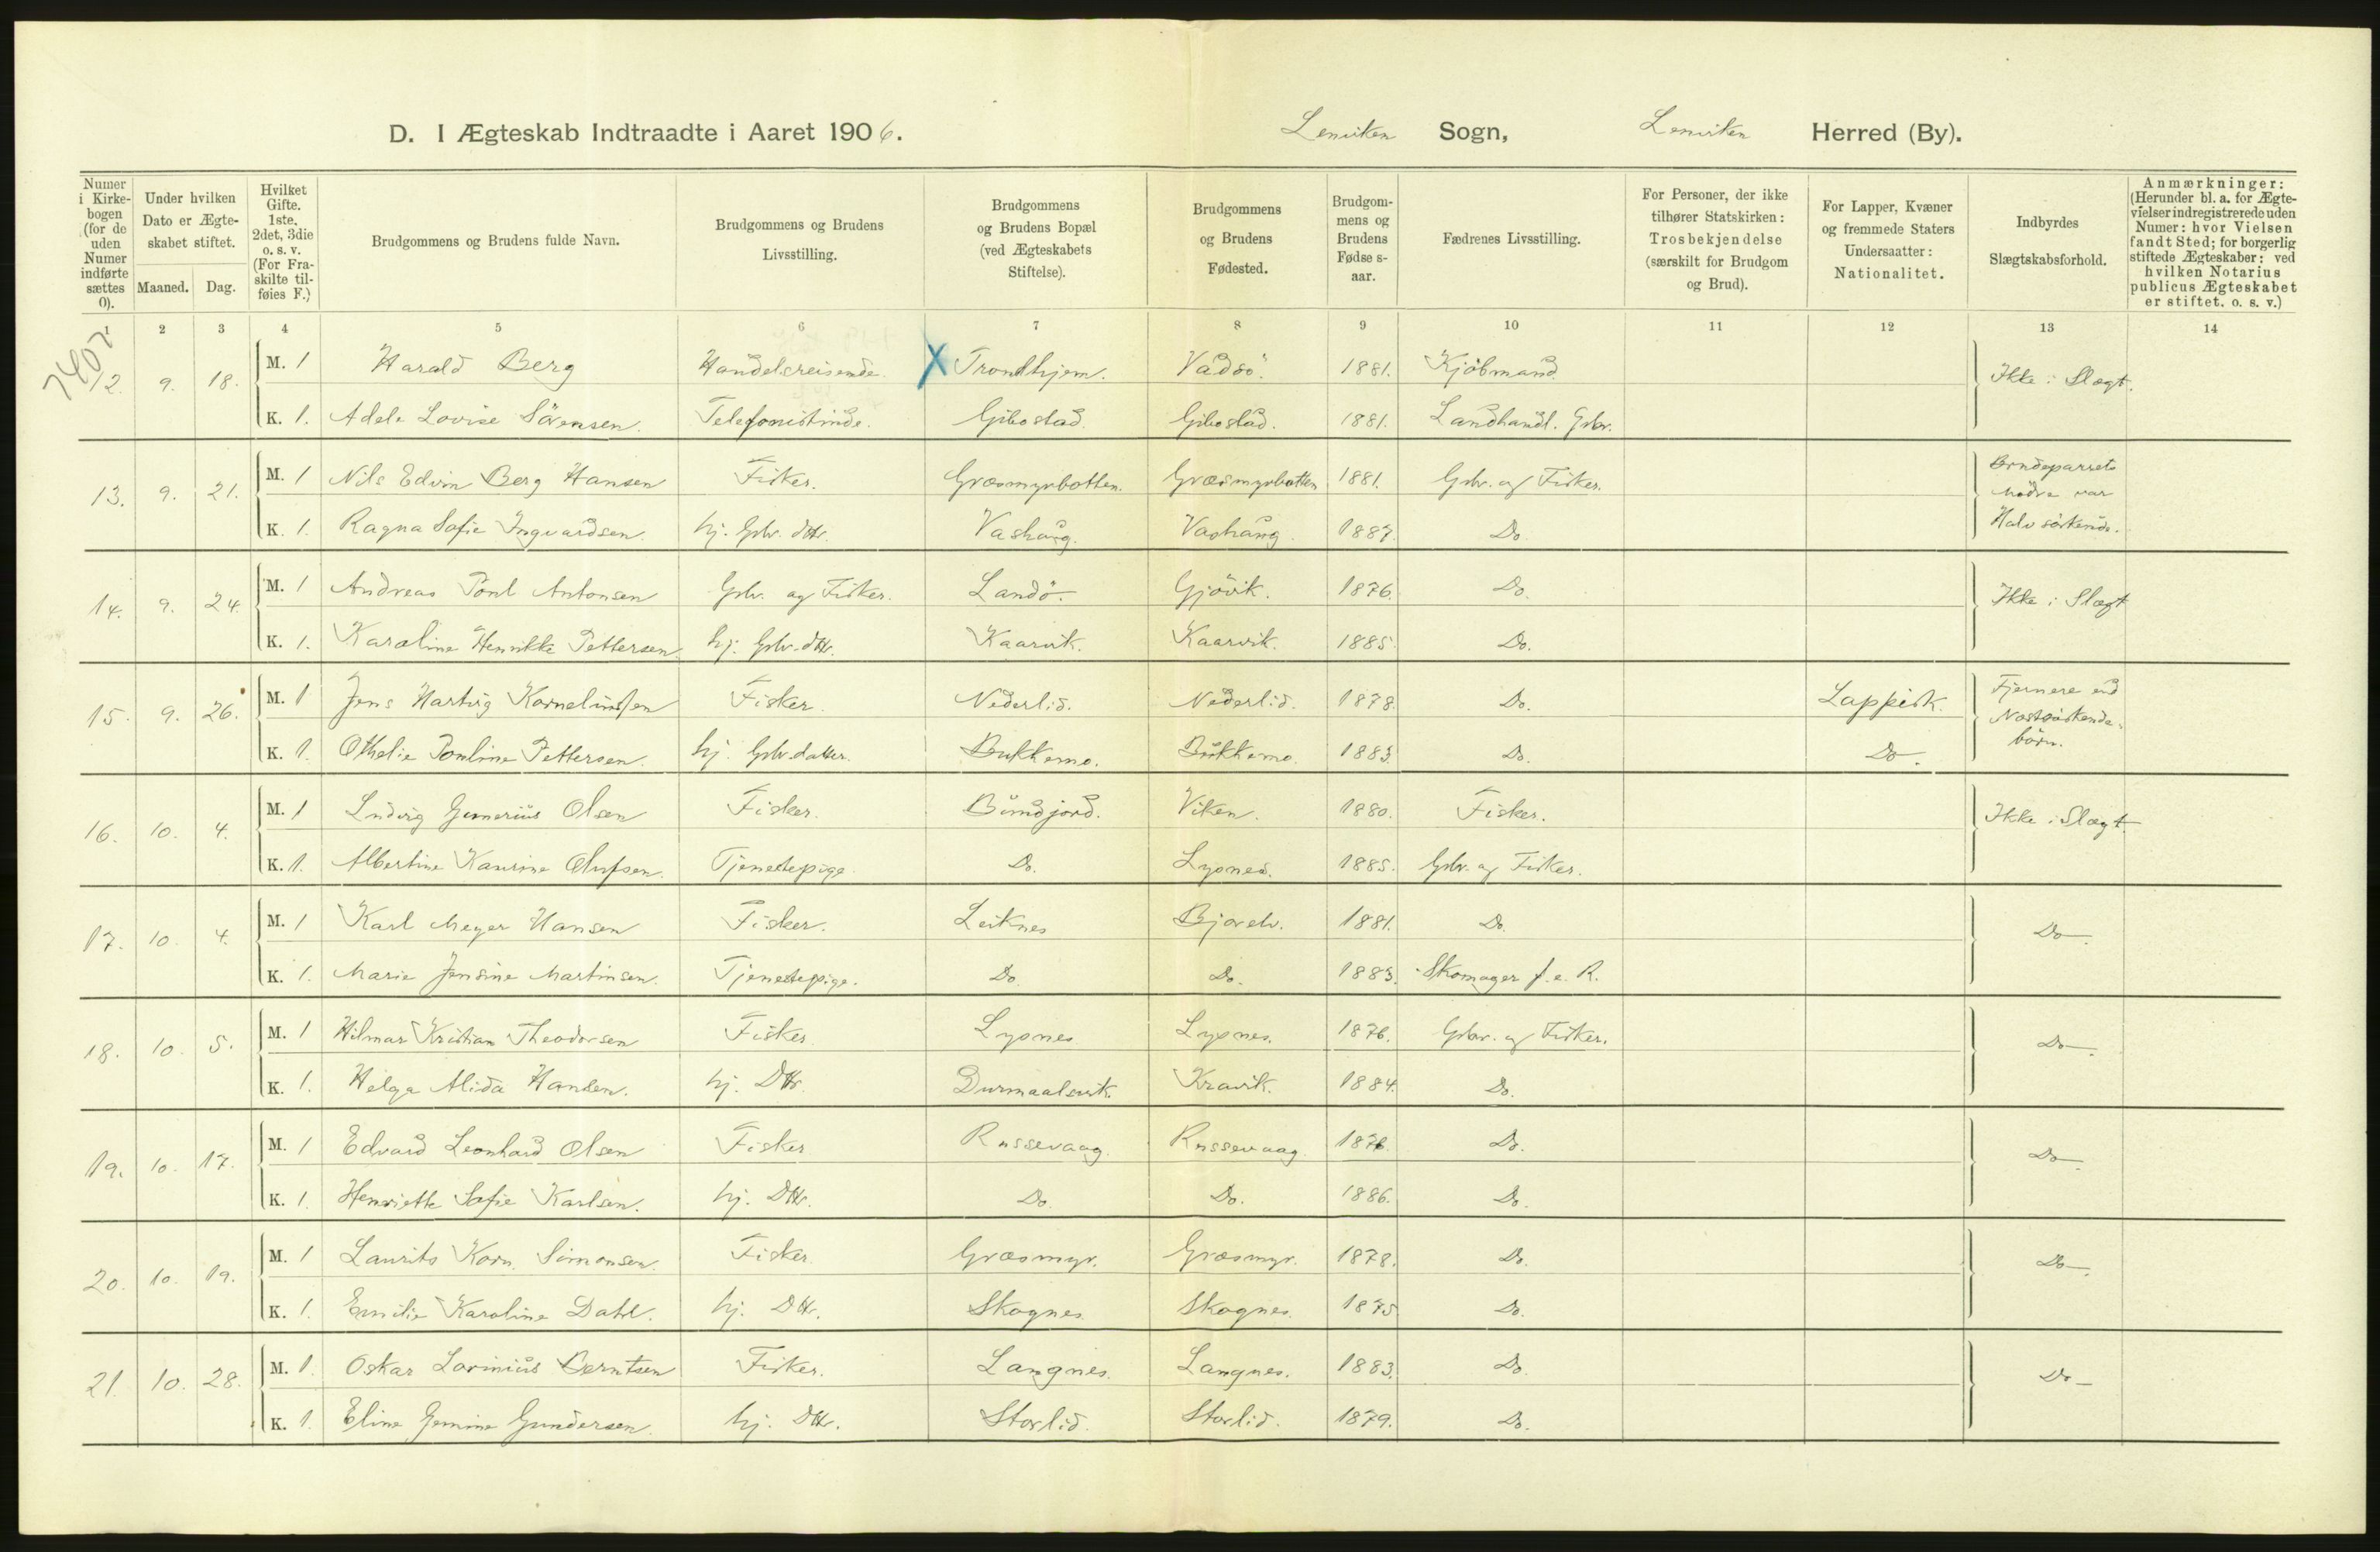 D. I Ægteskab Indtraadte i Aaret 1906. Lenviken Sogn, Lenviken Herred (By).
Numer i Kirkebogen (for de uden Numer indførte sættes 0). | Under hvilken Dato er Ægteskabet stiftet. Maaned. Dag. | Hvilket Gifte. 1ste. 2det, 3die o. s. v. (For Fraskilte tilføies F.) | Brudgommens og Brudens fulde Navn. | Brudgommens og Brudens Livsstilling. | Brudgommens og Brudens Bopæl (ved Ægteskabets Stiftelse). | Brudgommens og Brudens Fødested. | Brudgommens og Brudens Fødselsaar. | Fædrenes Livsstilling. | For Personer, der ikke tilhører Statskirken: Trosbekjendelse (særskilt for Brudgom og Brud). | For Lapper, Kvæner og fremmede Staters Undersaatter: Nationalitet. | Indbyrdes Slægtskabsforhold. | Anmærkninger: (Herunder bl. a. for Ægtevielser indregistrerede uden Numer: hvor Vielsen fandt Sted; for borgerlig stiftede Ægteskaber: ved hvilken Notarius publicus Ægteskabet er stiftet. o. s. v.)
1 2 3 4 5 6 7 8 9 10 11 12 13 14
7402
12. 9. 18. M. 1 Harald Berg Handelsreisende X Trondhjem. Vadsö. 1881. Kjöbmand. Ikke i Slægt.
K. 1. Adele Lovise Sörensen. Telefonistinde. Gibostad. Gibostad. 1881. Landhandl. Gbr.
13. 9. 21. M. 1 Nils Edvin Berg Hansen Fisker. Græsmyrbotten. Græsmyrbotten 1881. Gbr. og Fisker. Brudeparrets Mödre var Halvsöskende.
K. 1. Ragna Sofie Ingvardsen. hj. Gbr. dttr. Vashaug. Vashaug. 1887. Do.
14. 9. 24. M. 1 Andreas Paul Antonsen Gbr. og Fisker. Landö. Gjövik. 1876. Do. Ikke i Slægt
K. 1. Karoline Henrikke Pettersen hj. Gbr. dttr. Kaarvik. Kaarvik. 1885. Do.
15. 9. 26. M. 1 Jens Hartvig Kornelinssen Fisker. Nederlid. Nederlid. 1878. Do. Lappisk. Fjernere end Næstsöskendebörn.
K. 1. Othelie Pauline Pettersen. hj. Gbr. datter. Bukkemo. Bukkemo. 1883. Do. Do.
16. 10. 4. M. 1 Ludvig Gunerius Olsen Fisker. Bundjord. Viken. 1880. Fisker. Ikke i Slægt
K. 1. Albertine Kaurine Olufsen. Tjenestepige. Do. Lysnes. 1885. Gbr. og Fisker.
17. 10. 4. M. 1 Karl Meyer Hansen Fisker. Leiknes Bjorelv. 1881. Do. Do.
K. 1. Marie Jensine Martinsen. Tjenestepige. Do. Do. 1883. Skomager f. e. R.
18. 10. 5. M. 1 Hilmar Kristian Theodorsen Fisker Lysnes Lysnes. 1876. Gbr. og Fisker. Do.
K. 1. Helga Alida Hansen. hj. Dttr. Durmaalsvik. Kravik. 1884. Do.
19. 10. 17. M. 1 Edvard Leonhard Olsen Fisker Russevaag. Russevaag. 1876. Do. Do.
K. 1. Henriette Sofie Karlsen. hj. Dttr. Do. Do. 1886. Do.
20. 10. 19. M. 1 Laurits Korn. Simonsen. Fisker Græsmyr. Græsmyr. 1878. Do. Do.
K. 1. Emilie Karoline Dahl. hj. Dttr. Skognes. Skognes. 1875 Do.
21. 10. 28. M. 1. Oskar Lorinius Berntsen Fisker. Langnes. Langnes. 1883. Do. Do
K. 1. Eline Jemine Gundersen. hj. Dttr. Storlid. Storlid. 1879. Do.